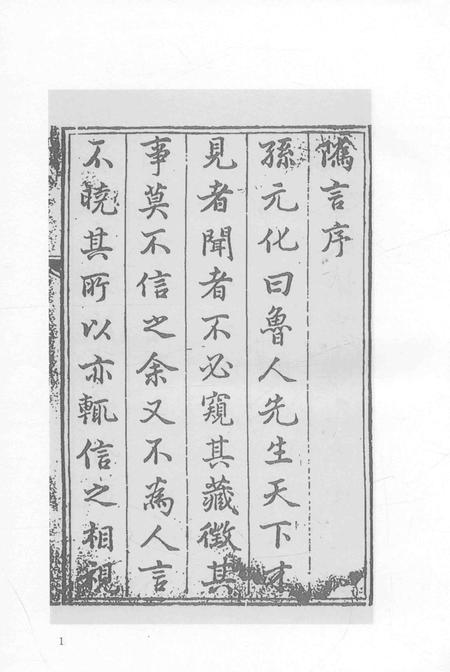 隱言序
孫元化曰魯人先生天下才
見者聞者不必窺其藏徵其
事莫不信之余又不為人言
不曉其所以亦輒信之相視
1